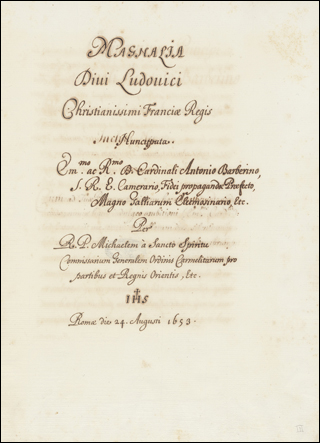 MAGNALIA
Divi Ludovici
Christianissimi Franciæ Regis
Nuncupata
Em.mo ac R.mo D. Cardinali Antonio Barberino,
S. R. E. Camerario, Fidei propagandæ Præfecto,
Magno Galliarum Elemosinario, etc.
Per
P. Michaelem à Sancto Spiritu
Commissarium Generalem Ordinis Carmelitarum pro
partibus et Regnis Orientis, etc.
IHS
Romæ die 24. Augusti 1653.